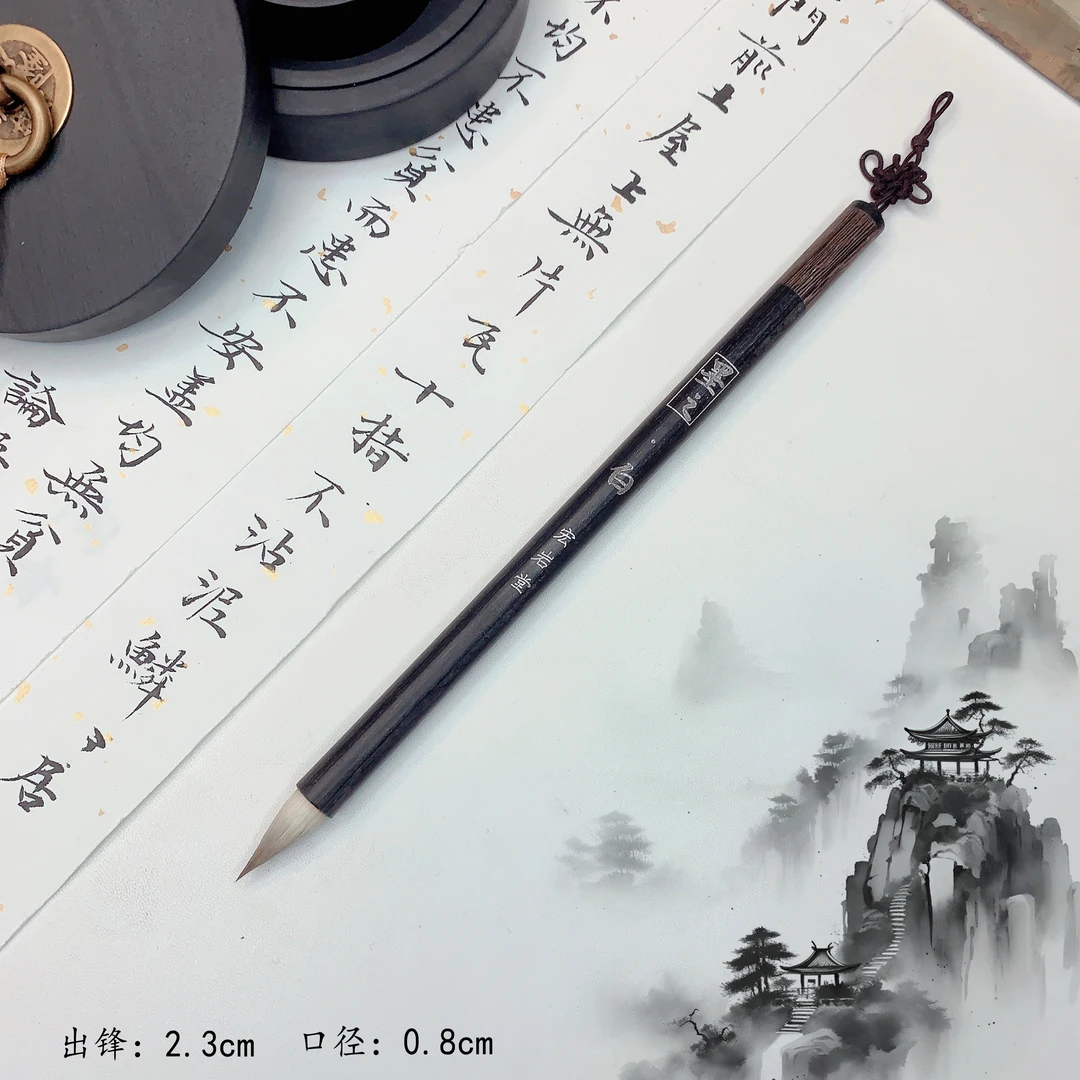 門前土屋上無片瓦十指不沾泥鱗々居
不均不患貧而患不安盖均無貧
論
墨之
白
宏岩堂
出锋：2.3cm 口径：0.8cm